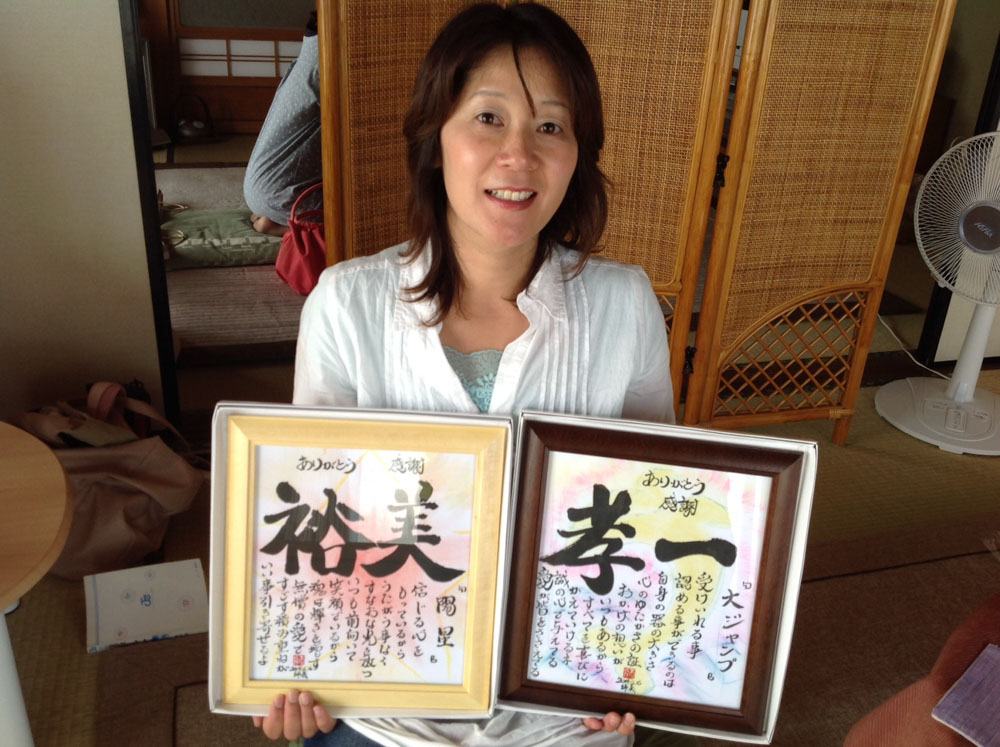 ありがとう 感謝
裕美
陽星
信じる心を
もっているから
うたがう事なく
すなおな光を放つ
いつも前向いて
笑顔でいるから
魂は輝きを増す
無償の愛で
すごす徳の重ねが
いい事引きよせるよ
ありがとう
感謝
孝一
大ジャンプ
受けいれる事
認める事ができるのは
自身の器の大きさ
心のゆたかさの証
おかげの想いが
いつもあるから
すべてを喜びに
かえていけるよ
誠の心で与えてる
愛が皆をささえてる